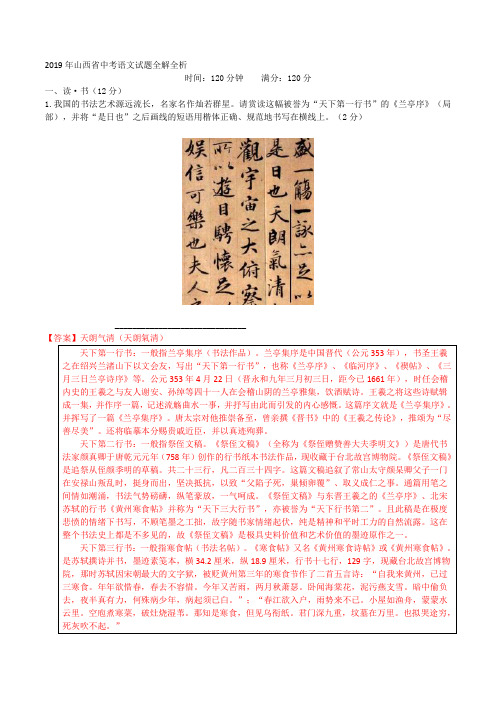 2019年山西省中考语文试题全解全析
时间：120分钟 满分：120分
一、读·书(12分)
1.我国的书法艺术源远流长，名家名作灿若群星。请赏读这幅被誉为“天下第一行书”的《兰亭序》(局
部)，并将“是日也”之后画线的短语用楷体正确、规范地书写在横线上。(2分)
盛一觴一詠亦足以
是日也天朗氣清
觀宇宙之大俯察
所以遊目騁懷足
娛信可樂也夫人之
【答案】天朗气清（天朗氣清）
天下第一行书：一般指兰亭集序（书法作品）。兰亭集序是中国晋代（公元353年），书圣王羲
之在绍兴兰渚山下以文会友，写出“天下第一行书”，也称《兰亭序》、《临河序》、《禊帖》、《三
月三日兰亭诗序》等。公元353年4月22日（晋永和九年三月初三日，距今已1661年），时任会稽
内史的王羲之与友人谢安、孙绰等四十一人在会稽山阴的兰亭雅集，饮酒赋诗。王羲之将这些诗赋辑
成一集，并作序一篇，记述流觞曲水一事，并抒写由此而引发的内心感慨。这篇序文就是《兰亭集序》。
并挥写了一篇《兰亭集序》。唐太宗对他推崇备至，曾亲撰《晋书》中的《王羲之传论》，推颂为“尽
善尽美”。还将临摹本分赐贵戚近臣，并以真迹殉葬。
天下第二行书：一般指祭侄文稿。《祭侄文稿》（全称为《祭侄赠赞善大夫季明文》）是唐代书
法家颜真卿于唐乾元元年(758年)创作的行书纸本书法作品，现收藏于台北故宫博物院。《祭侄文稿》
是追祭从侄颜季明的草稿。共二十三行，凡二百三十四字。这篇文稿追叙了常山太守颜杲卿父子一门
在安禄山叛乱时，挺身而出，坚决抵抗，以致“父陷子死，巢倾卵覆”、取义成仁之事。通篇用笔之
间情如潮涌，书法气势磅礴，纵笔豪放，一气呵成。《祭侄文稿》与东晋王羲之的《兰亭序》、北宋
苏轼的行书《黄州寒食帖》并称为“天下三大行书”，亦被誉为“天下行书第二”。且此稿是在极度
悲愤的情绪下书写，不顾笔墨之工拙，故字随书家情绪起伏，纯是精神和平时工力的自然流露。这在
整个书法史上都是不多见的，故《祭侄文稿》是极具史料价值和艺术价值的墨迹原作之一。
天下第三行书：一般指寒食帖（书法名帖）。《寒食帖》又名《黄州寒食诗帖》或《黄州寒食帖》。
是苏轼撰诗并书，墨迹素笺本，横34.2厘米，纵18.9厘米，行书十七行，129字，现藏台北故宫博物
院，那时苏轼因宋朝最大的文字狱，被贬黄州第三年的寒食节作了二首五言诗：“自我来黄州，已过
三寒食。年年欲惜春，春去不容惜。今年又苦雨，两月秋萧瑟。卧闻海棠花，泥污燕支雪。暗中偷负
去，夜半真有力，何殊病少年，病起须已白。”；“春江欲入户，雨势来不已。小屋如渔舟，蒙蒙水
云里。空庖煮寒菜，破灶烧湿苇。那知是寒食，但见乌衔纸。君门深九重，坟墓在万里。也拟哭途穷，
死灰吹不起。”